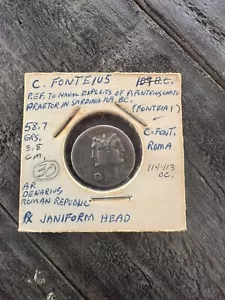 C. FONTEIUS
109 B.C.
REF. TO NAVAL EXPLOITS OF P. ANTEIUS WHO
PRAETOR IN SARDINA, BC.
(FONTEIA 1)
58.7
GRS.
3.8
GM.
C. FONT.
ROMA
114-113
BC.
30
AR
DENARIUS
ROMAN REPUBLIC
JANIFORM HEAD